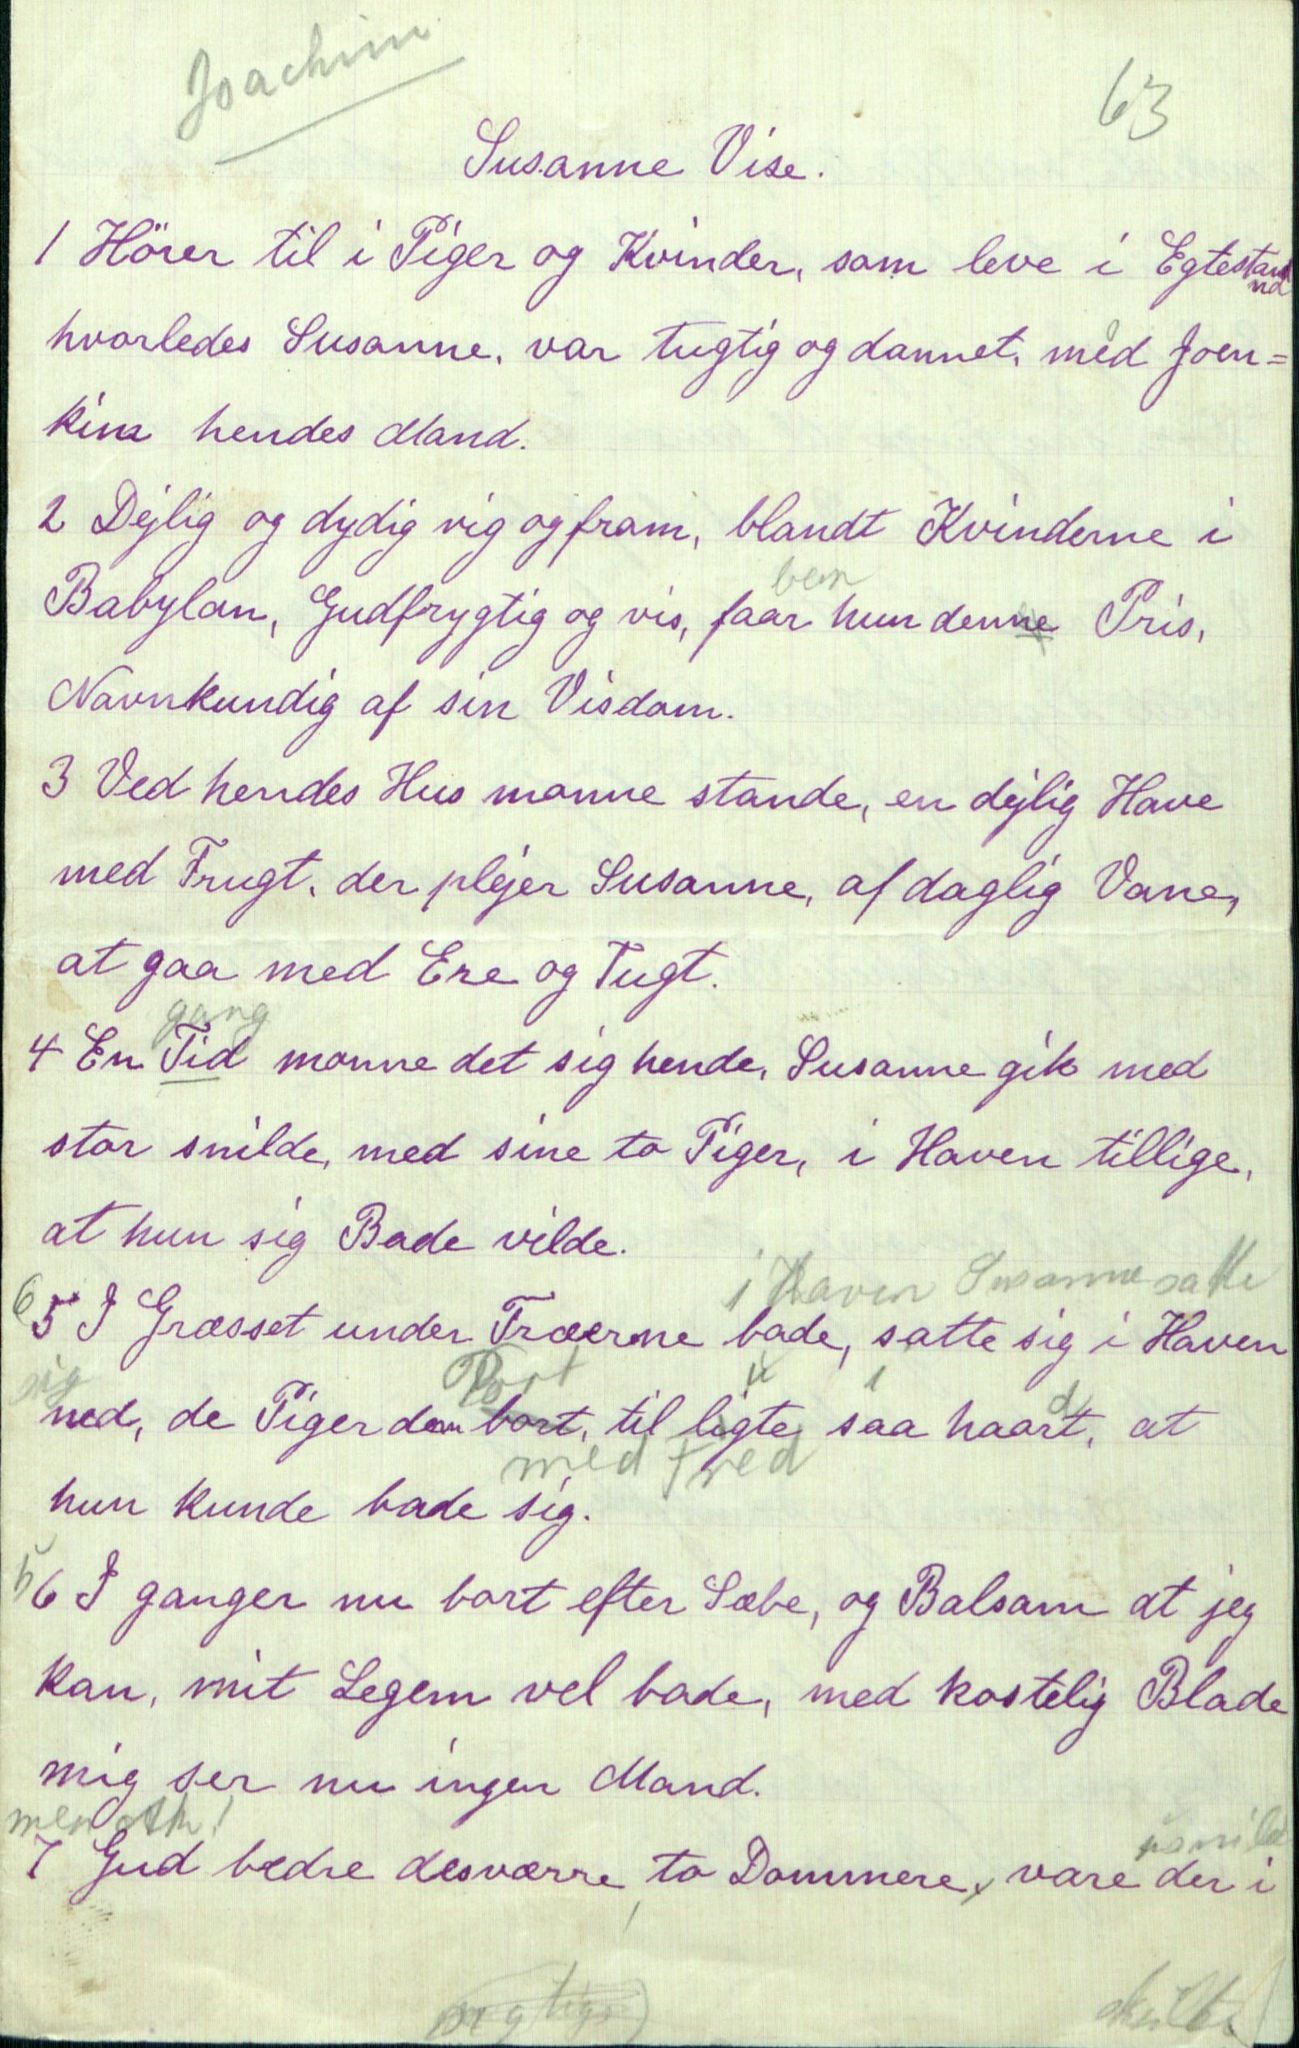 Joachim
63
Susanne Vise.
1 Hörer til i Piger og Kvinder, som leve i Egtestand
hvorledes Susanne, var tugtig og dannet, med Joen=
kim hendes Mand.
2 Dejlig og dydig rig og from, blandt Kvinderne i
bem
Babylon, Gudfrygtig og vis, faar hun denne Pris,
Navnkundig af sin Visdom.
3 Ved hendes Hus monne stande, en dejlig Have
med Frugt, der plejer Susanne, af daglig Vane,
at gaa med Ere og Tugt.
gang
4 En Tid monne det sig hende, Susanne gik med
stor snilde, med sine to Piger, i Haven tillige,
at hun sig Bade vilde.
i Haven Susanne satte
6
5 I Græsset under Træerne bade, satte sig i Haven
sig Port
ned, de Piger den bort, til ligte saa haart, at
med Fred
hun kunde bade sig.
5
6 I ganger nu bort efter Sæbe, og Balsam at jeg
kan, mit Legem vel bade, med kostelig Blade
mig ser nu ingen Mand.
men ak!
7 Gud bedre desværre, to Dommere, vare der i